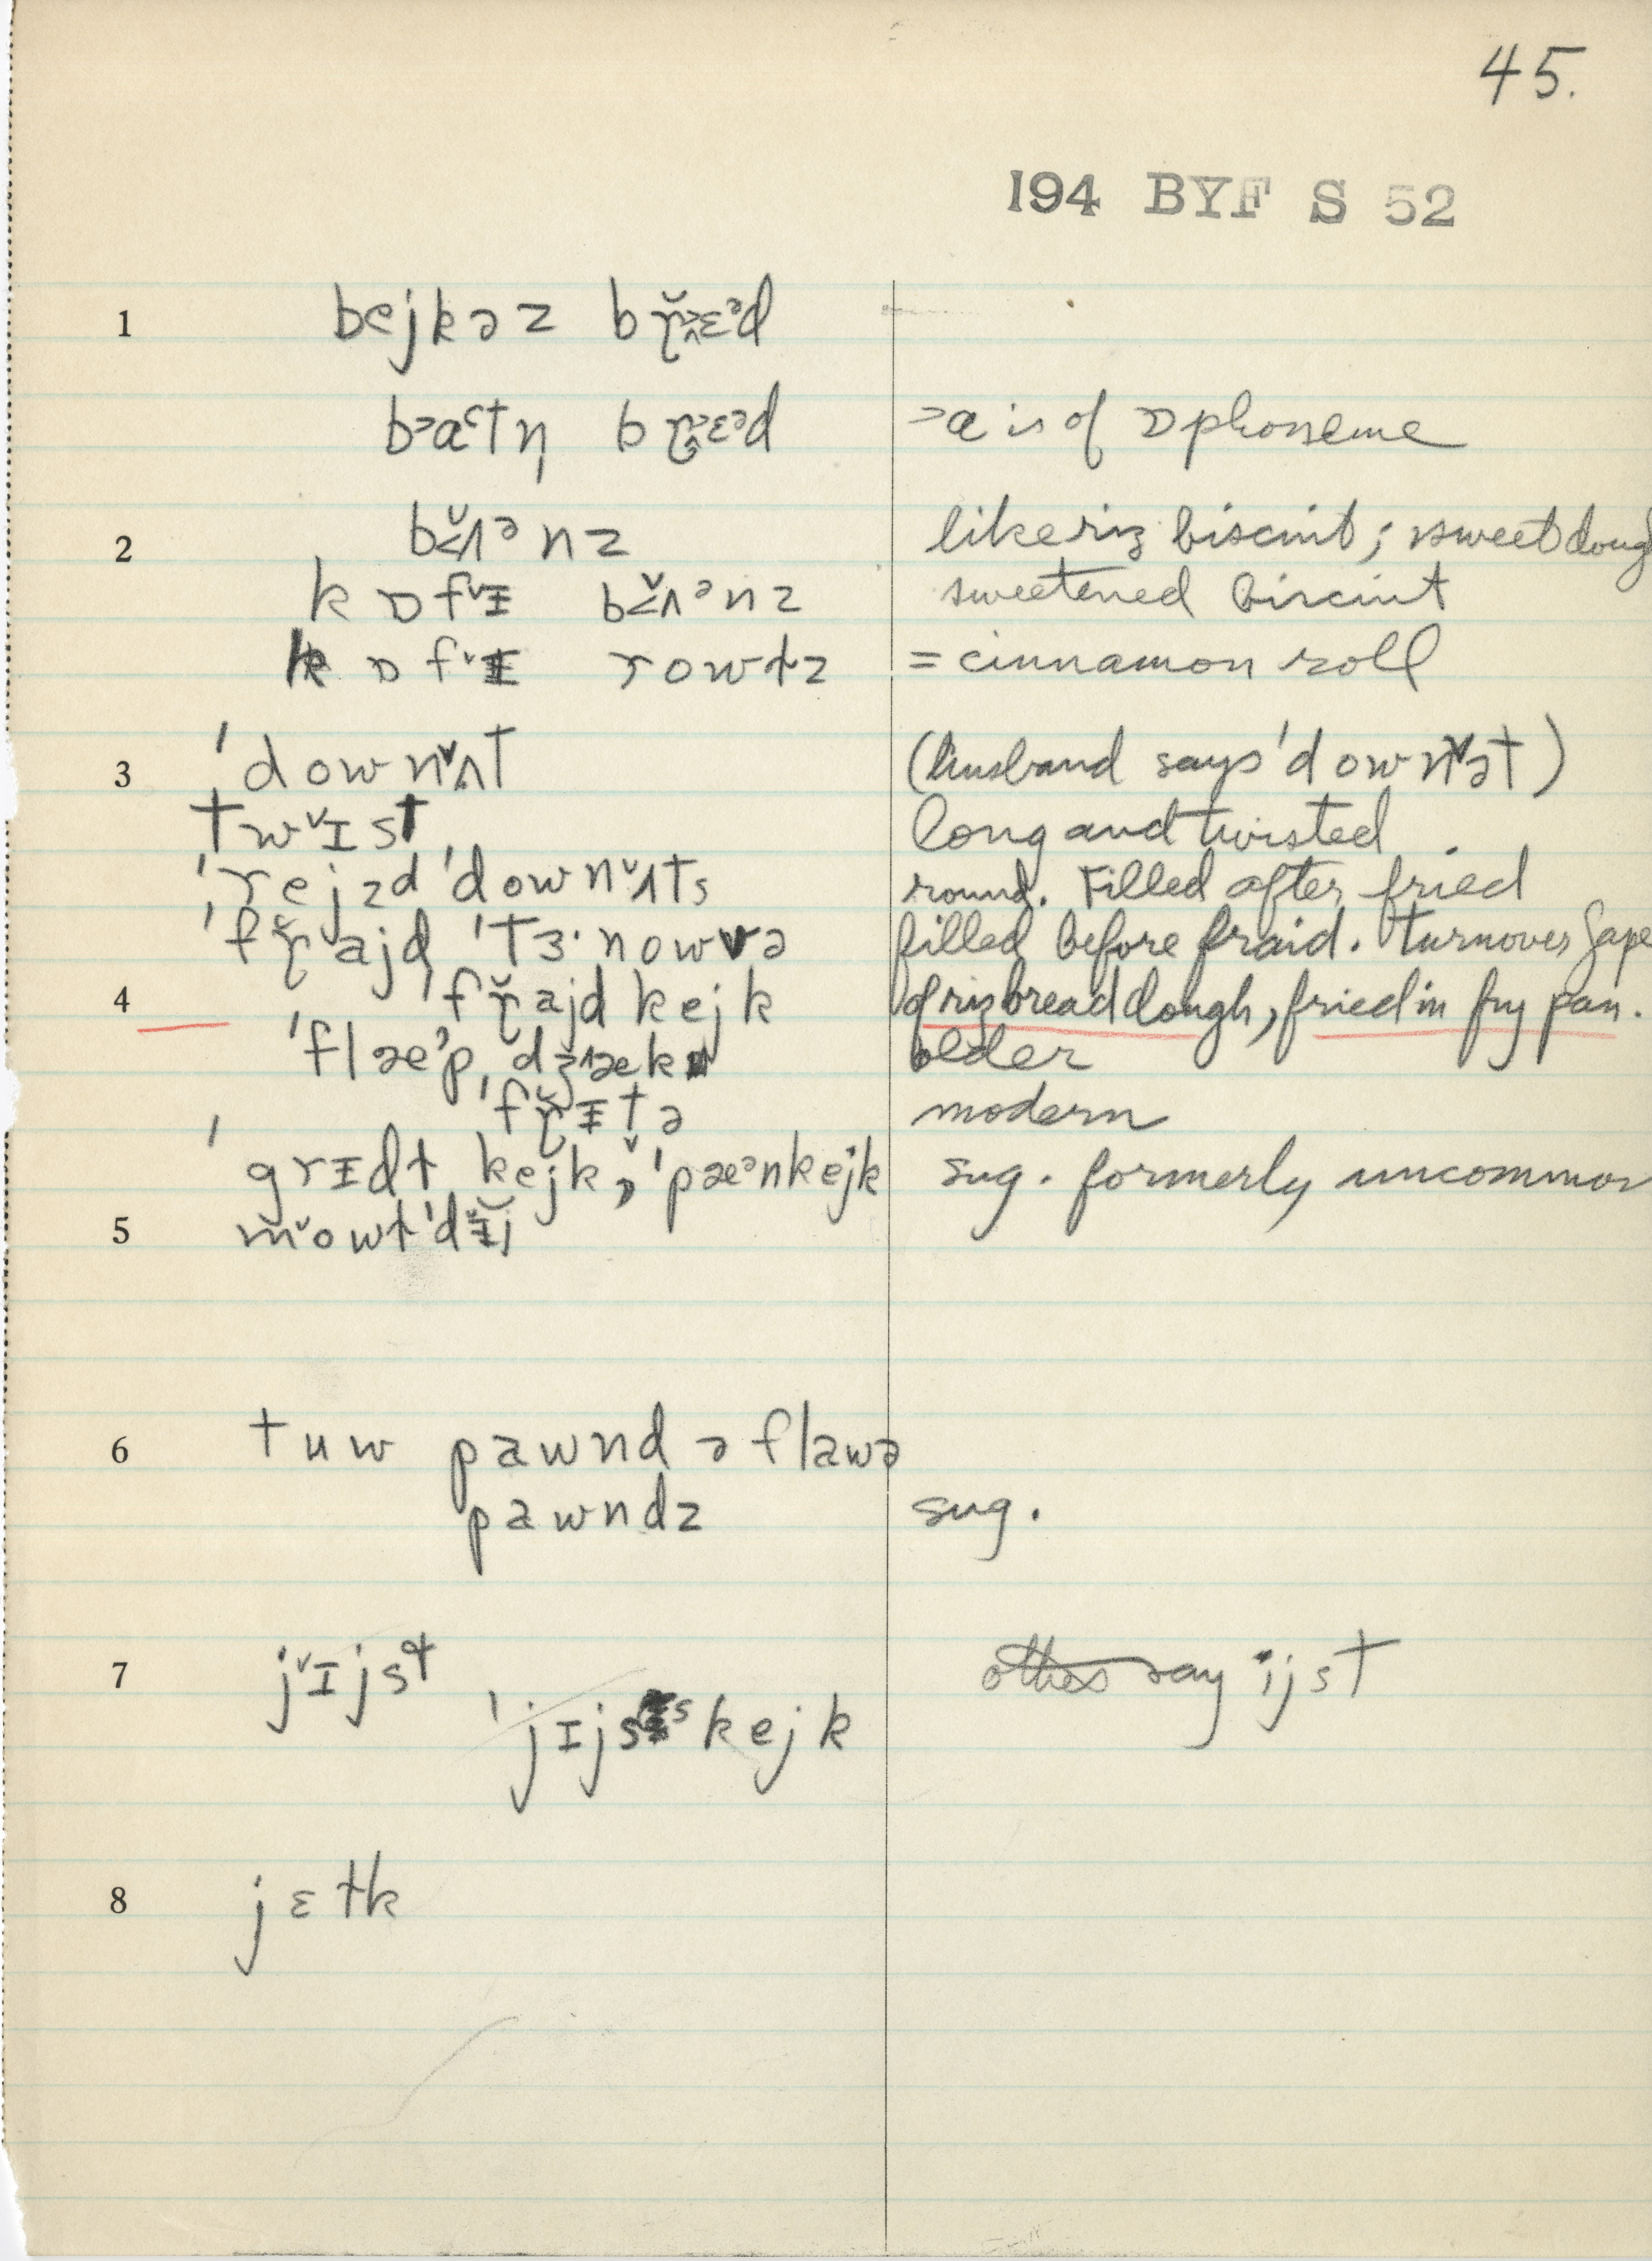 45.
194 BYF S 52
1 bejkəz bɽ̆ɛᵊd
bɑtn̩ bɽɛᵊd >ɑ is of ɒ phoneme
2 bʌ̆ᵊnz like riz biscuit; sweet doug
kɒfᵛᵻ bʌ̆ᵊnz sweetened biscuit
kɒfᵛᵻ rowɫz = cinnamon roll
3 'downᵛʌt (husband says 'downᵛət)
twᵛɪst long and twisted
'rejzd 'downᵛʌts round. Filled after fried
'fɽ̆ajd 'tɜ·nowvə filled before fraid. turnover Sape
4 'fɽ̆ajd kejk of riz bread dough, fried in fry pan.
'flæᵊp, dʒæk older
'fɽ̆ᵻtə modern
'grᵻdɫ kejk, 'pæᵊnkejk sug. formerly uncommon
5 mᵛowɫ'dᵻ̆j
6 tuw pawnd ə flawə
pawndz sug.
7 jᵛɪjst say ijst
'jɪjsˢkejk
8 jɛɫk